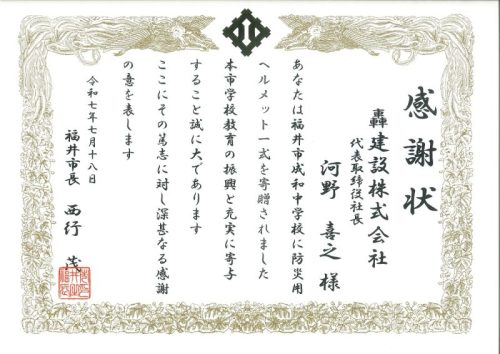 感謝状
轟建設株式会社
代表取締役社長
河野喜之様
あなたは福井市成和中学校に防災用
ヘルメット一式を寄贈されました
本市学校教育の振興と充実に寄与
すること誠に大であります
ここにその篤志に対し深甚なる感謝
の意を表します
令和七年七月十八日
福井市長 西行茂